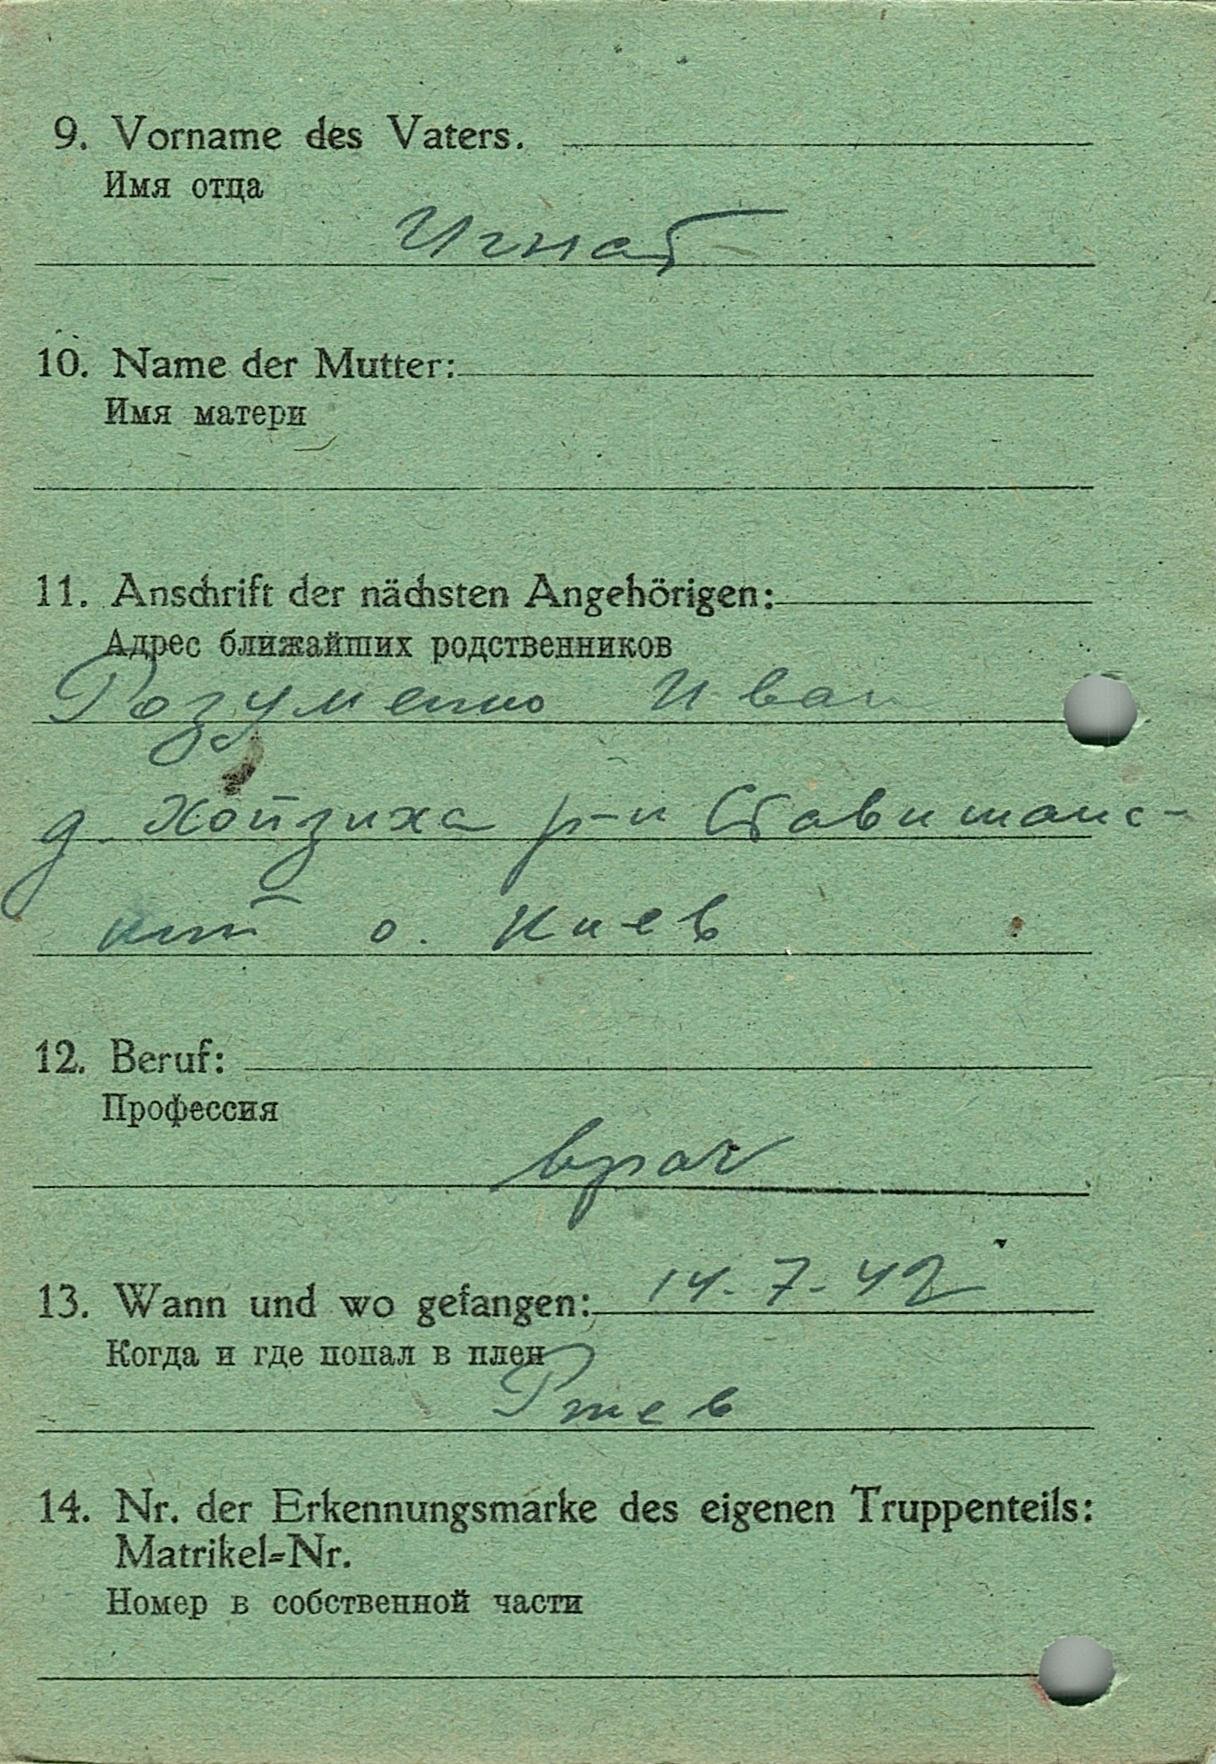 9. Vorname des Vaters.
Имя отца
Игнат
10. Name der Mutter:
Имя матери
11. Anschrift der nächsten Angehörigen:
Адрес ближайших родственников
Розуменко Иван
д. р-н Ставищанс-
кий о. Киев
12. Beruf:
Профессия
врач
13. Wann und wo gefangen: 14.7.42
Когда и где попал в плен
Ржев
14. Nr. der Erkennungsmarke des eigenen Truppenteils:
Matrikel-Nr.
Номер в собственной части